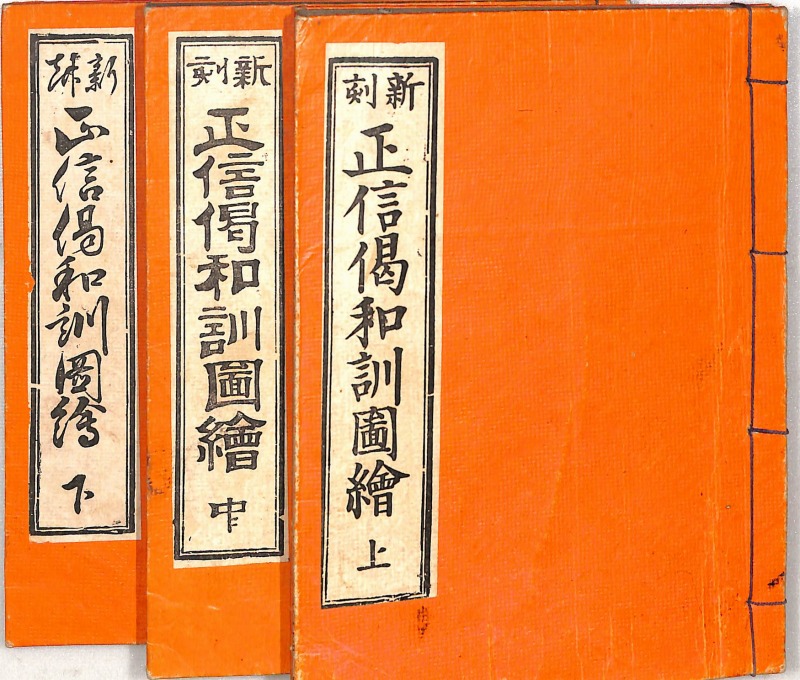 新刻
正信偈和訓圖繪 上
新刻
正信偈和訓圖繪 中
新
正信偈和訓圖繪 下